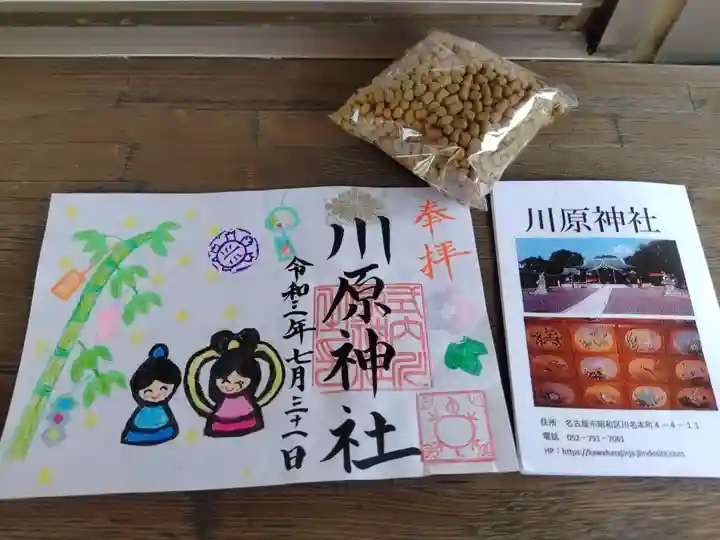 奉拝
川原神社
令和三年七月三十一日
川原神社
住所 名古屋市昭和区川名本町４－４－１１
電話 052-751-7061
HP：https://kawaharajinja.jimdosite.com